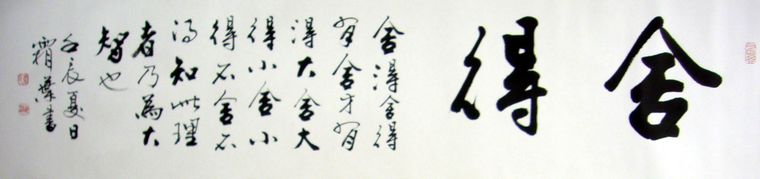 舍得
舍得舍得
有舍才有
得大舍大
得小舍小
得不舍不
得知此理
者乃為大
智也
壬辰夏日
霜葉書